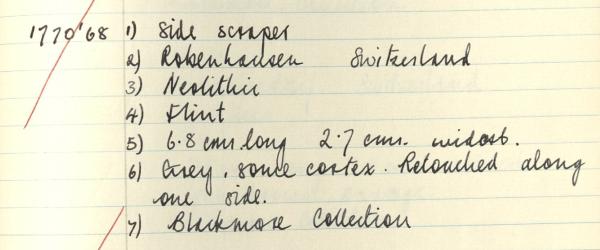 1770'68 1) Side scraper
2) Robenhausen Switzerland
3) Neolithic
4) Flint
5) 6.8 cms. long 2.7 cms. widest.
6) Grey, some cortex. Retouched along
one side.
7) Blackmore Collection